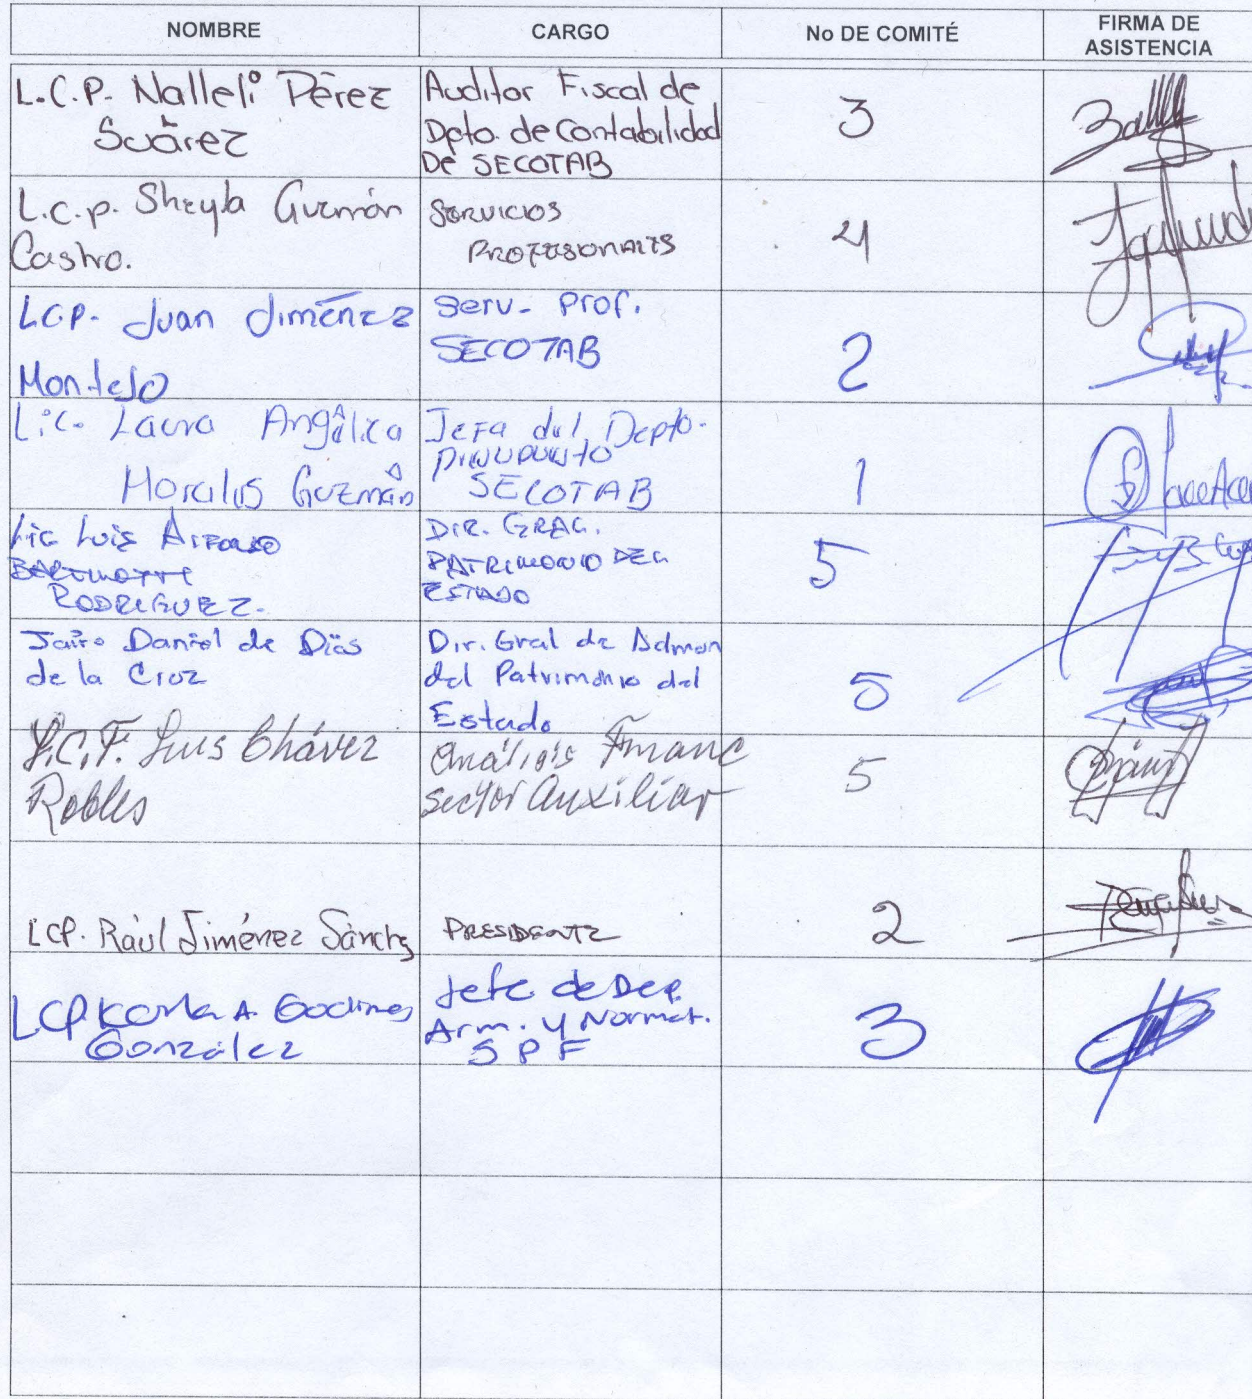 NOMBRE CARGO No DE COMITÉ FIRMA DE
ASISTENCIA
L.C.P. Nalleli Pérez
Suárez
Auditor Fiscal de
Dpto. de Contabilidad
De SECOTAB
3
L.C.P. Sheyla Guzmán
Castro.
SERVICIOS
PROFESIONALES
4
LCP. Juan Jiménez
Montejo
Serv. Prof.
SECOTAB
2
Lic. Laura Angélica
Morales Guzmán
Jefa del Depto.
presupuesto
SECOTAB
1
Lic Luis Alfonso
RODRIGUEZ.
DIR. GRAL.
PATRIMONIO DEL
ESTADO
5
Jairo Daniel de Dios
de la Cruz
Dir. Gral de Admon
del Patrimonio del
Estado
5
L.C.F. Luis Chávez
Robles
Análisis Financ
sector Auxiliar
5
LCP. Raúl Jiménez Sánchez
PRESIDENTE
2
LCP Karla A. Godines
González
Jefe de Dep.
Arm. y Normat.
SPF
3